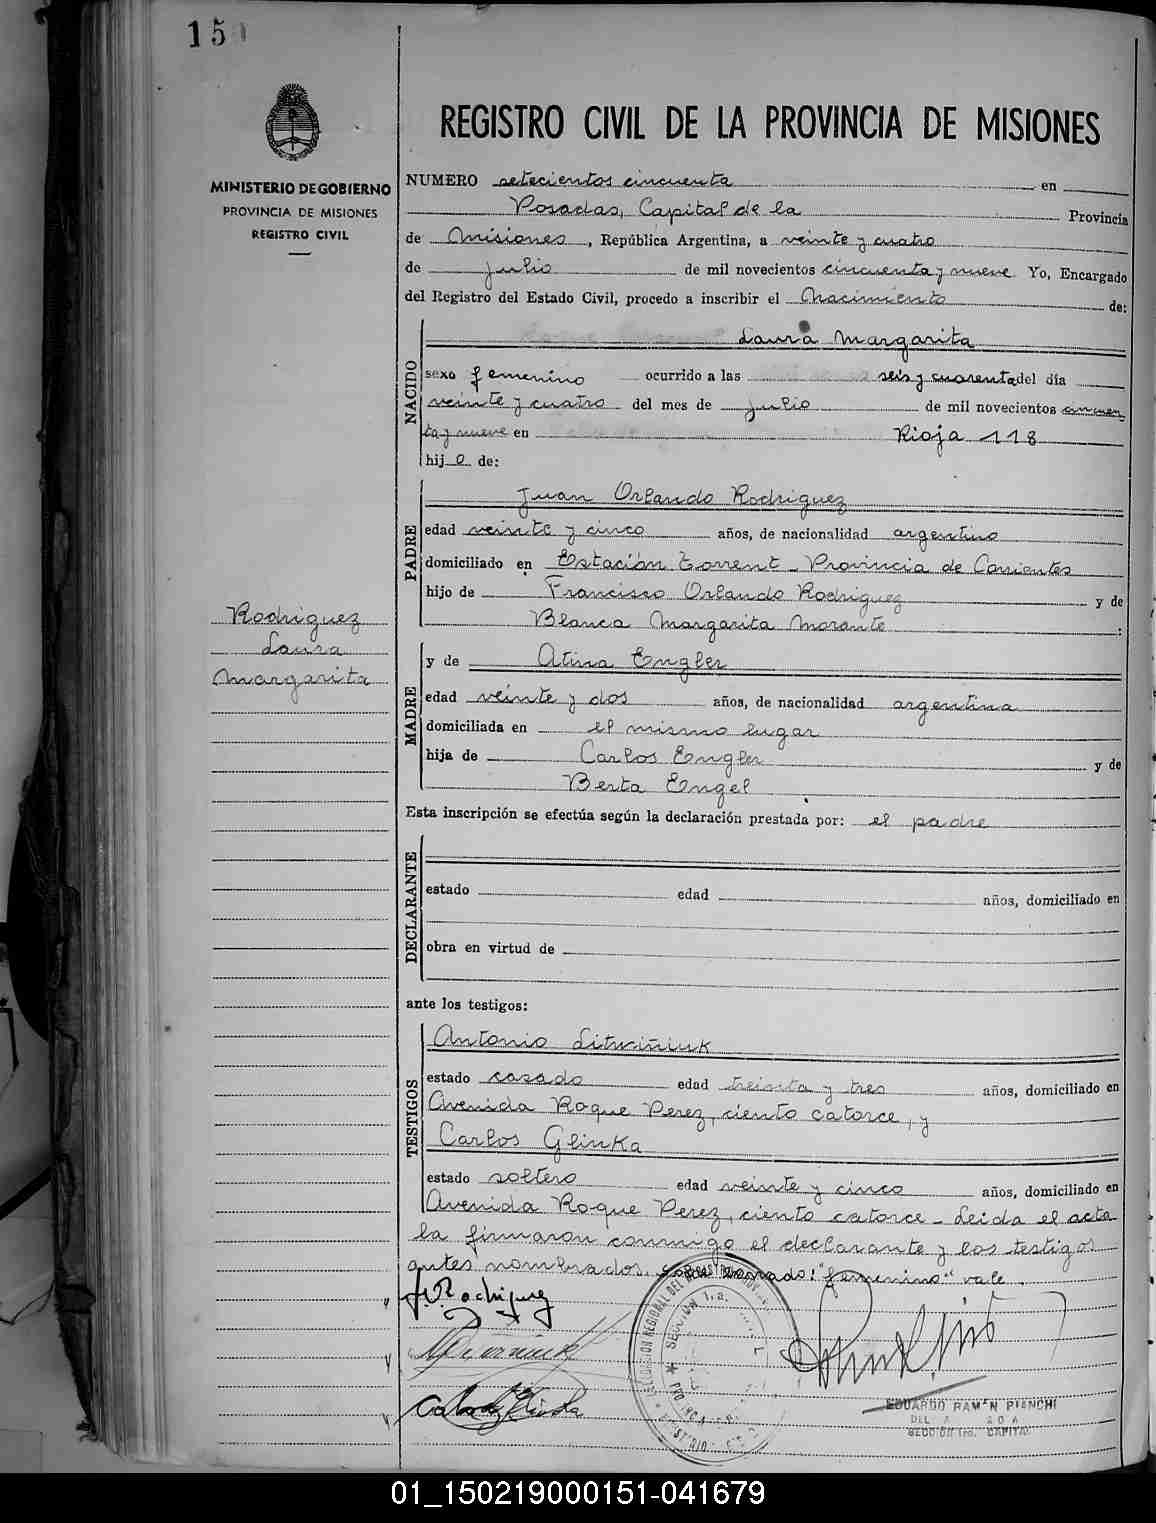 15
REGISTRO CIVIL DE LA PROVINCIA DE MISIONES
MINISTERIO DE GOBIERNO
PROVINCIA DE MISIONES
REGISTRO CIVIL
NUMERO setecientos cincuenta en
Posadas, Capital de la Provincia
de Misiones, República Argentina, a veinte y cuatro
de julio de mil novecientos cincuenta y nueve Yo, Encargado
del Registro del Estado Civil, procedo a inscribir el Nacimiento de:
NACIDO
Laura Margarita
sexo femenino ocurrido a las seis y cuarenta del día
veinte y cuatro del mes de julio de mil novecientos cincuen
ta y nueve en Rioja 118
hijo de:
PADRE
Juan Orlando Rodriguez
edad veinte y cinco años, de nacionalidad argentino
domiciliado en Estación Torrent - Provincia de Corrientes
hijo de Francisco Orlando Rodriguez y de
Blanca Margarita Morante :
Rodriguez
Laura
Margarita
MADRE
y de Atina Engler
edad veinte y dos años, de nacionalidad argentina
domiciliada en el mismo lugar
hija de Carlos Engler y de
Berta Engel
Esta inscripción se efectúa según la declaración prestada por: el padre
DECLARANTE
estado edad años, domiciliado en
obra en virtud de
ante los testigos:
TESTIGOS
Antonio Litwiñiuk
estado casado edad treinta y tres años, domiciliado en
Avenida Roque Perez, ciento catorce, y
Carlos Glinka
estado soltero edad veinte y cinco años, domiciliado en
Avenida Roque Perez, ciento catorce - Leida el acta
la firmaron conmigo el declarante y los testigos
antes nombrados. sobre borrado: "femenino" vale.
J.O. Rodriguez
SECCION 1.a.
EDUARDO RAMON PIANCHI
SECCION 1ra. CAPITAL
01_150219000151-041679